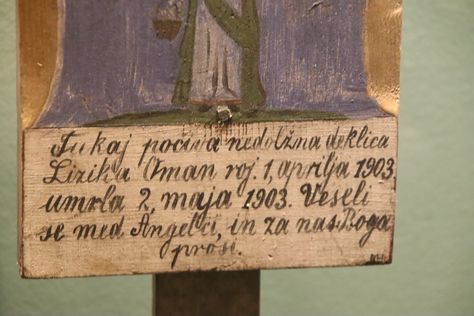 Tukaj počiva nedolžna deklica
Lizika Oman roj. 1, aprilja 1903,
umrla 2, maja 1903. Veseli
se med Angelci, in za nas Boga
prosi.